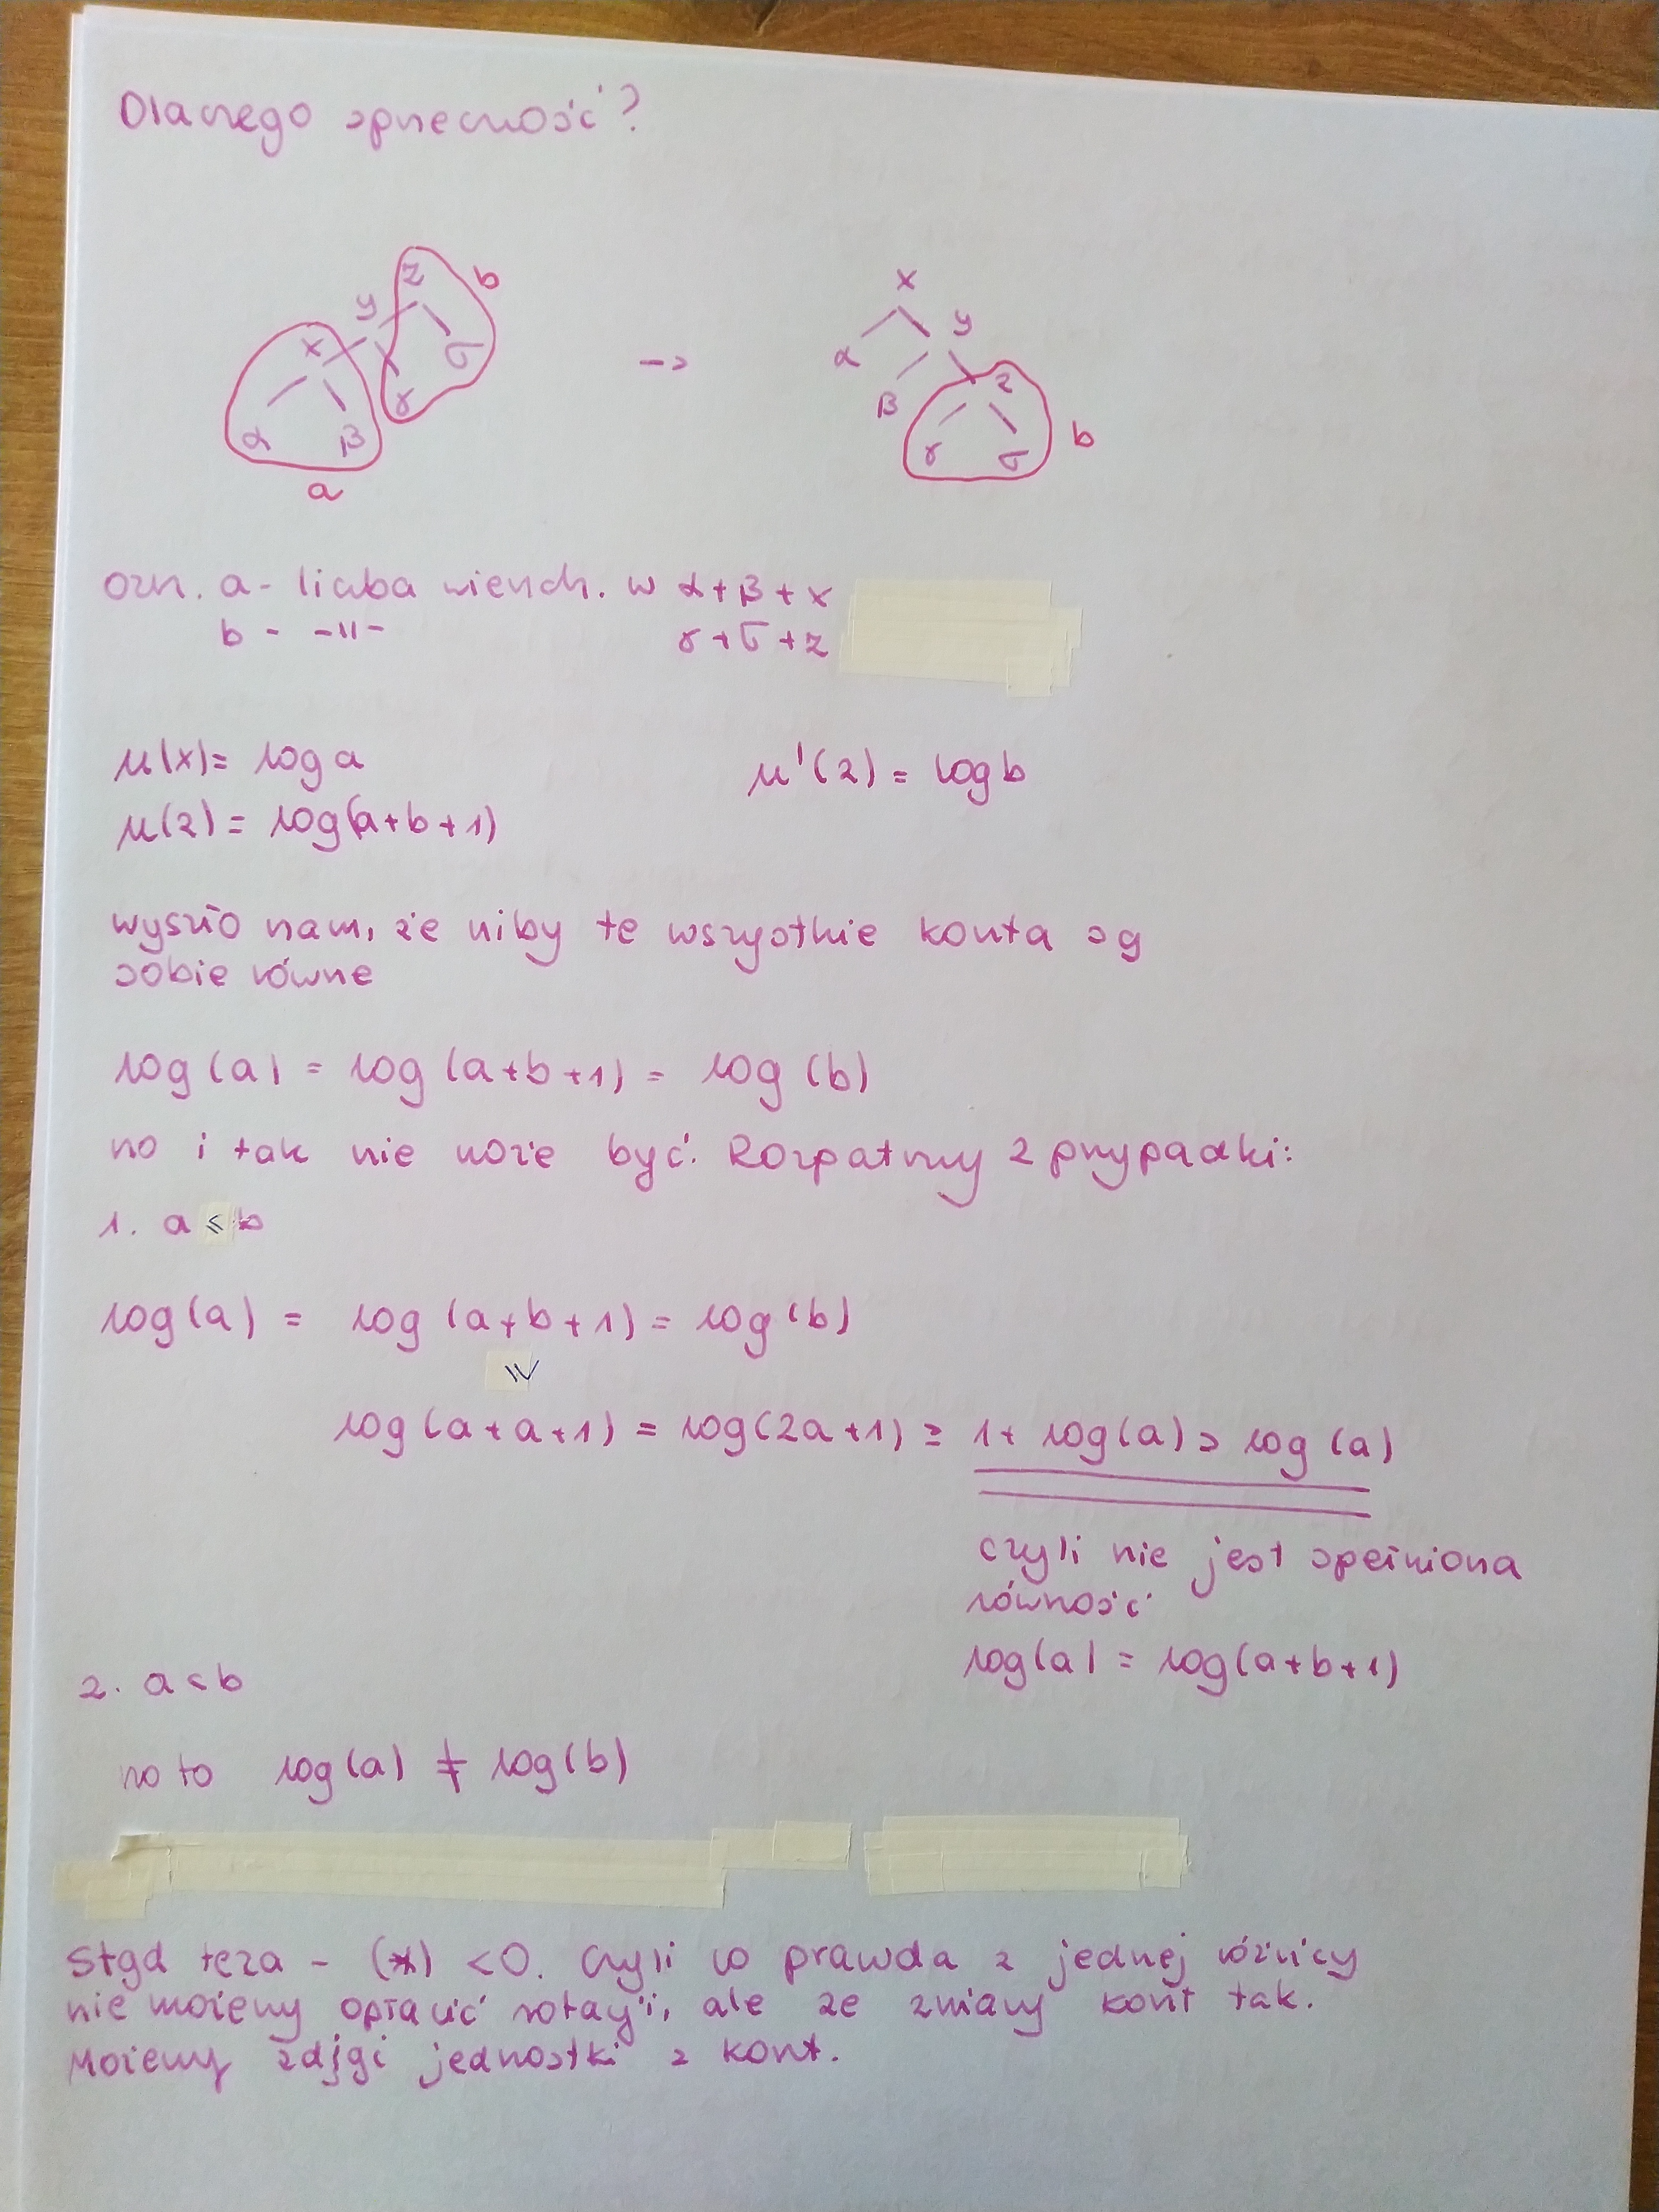 Dlaczego sprzeczność?
z b
y x
x σ α y
γ β z
α β γ σ b
a
->
ozn. a - liczba wierzch. w α + β + x
b - -11- γ + σ + z
μ(x) = log a μ'(z) = log b
μ(z) = log(a+b+1)
wyszło nam, że niby te wszystkie konta są
sobie równe
log(a) = log(a+b+1) = log(b)
no i tak nie może być. Rozpatrzmy 2 przypadki:
1. a ≤ b
log(a) = log(a+b+1) = log(b)
log(a+a+1) = log(2a+1) ≥ 1+ log(a) > log(a)
czyli nie jest spełniona
równość
log(a) = log(a+b+1)
2. a < b
no to log(a) ≠ log(b)
Stąd teza - (*) < 0. Czyli co prawda z jednej różnicy
nie możemy opłacić rotacji, ale ze zmiany kont tak.
Możemy zdjąć jednostki z kont.